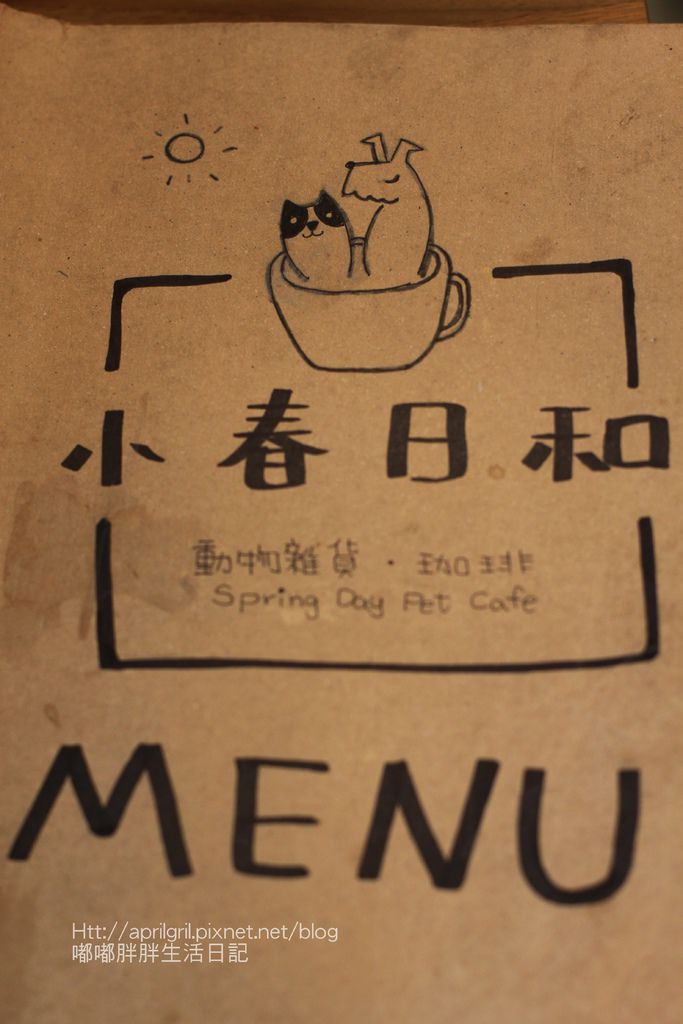 小春日和
動物雜貨・珈琲
Spring Day Pet Cafe
MENU
Htt://aprilgril.pixnet.net/blog
嘟嘟胖胖生活日記